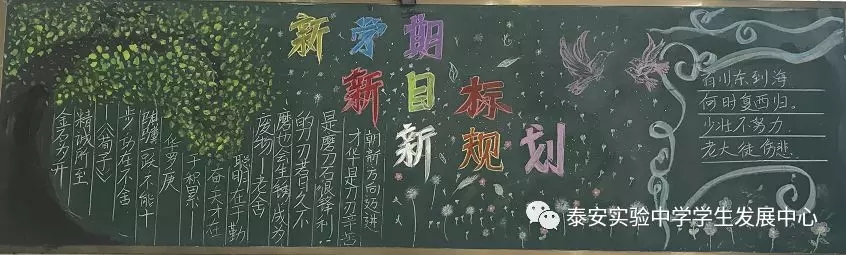 新学期
新目标
新规划
百川东到海
何时复西归。
少壮不努力.
老大徒伤悲.
朝新方向迈进
才华是刀刃辛苦
是磨刀石很锋利
的刀刃若日久不
磨也会生锈成为
废物—老舍
聪明在于勤
奋天才在
于积累
华罗庚
骐骥一跃不能十
步功在不舍
—《荀子》
精诚所至
金石为开
泰安实验中学学生发展中心